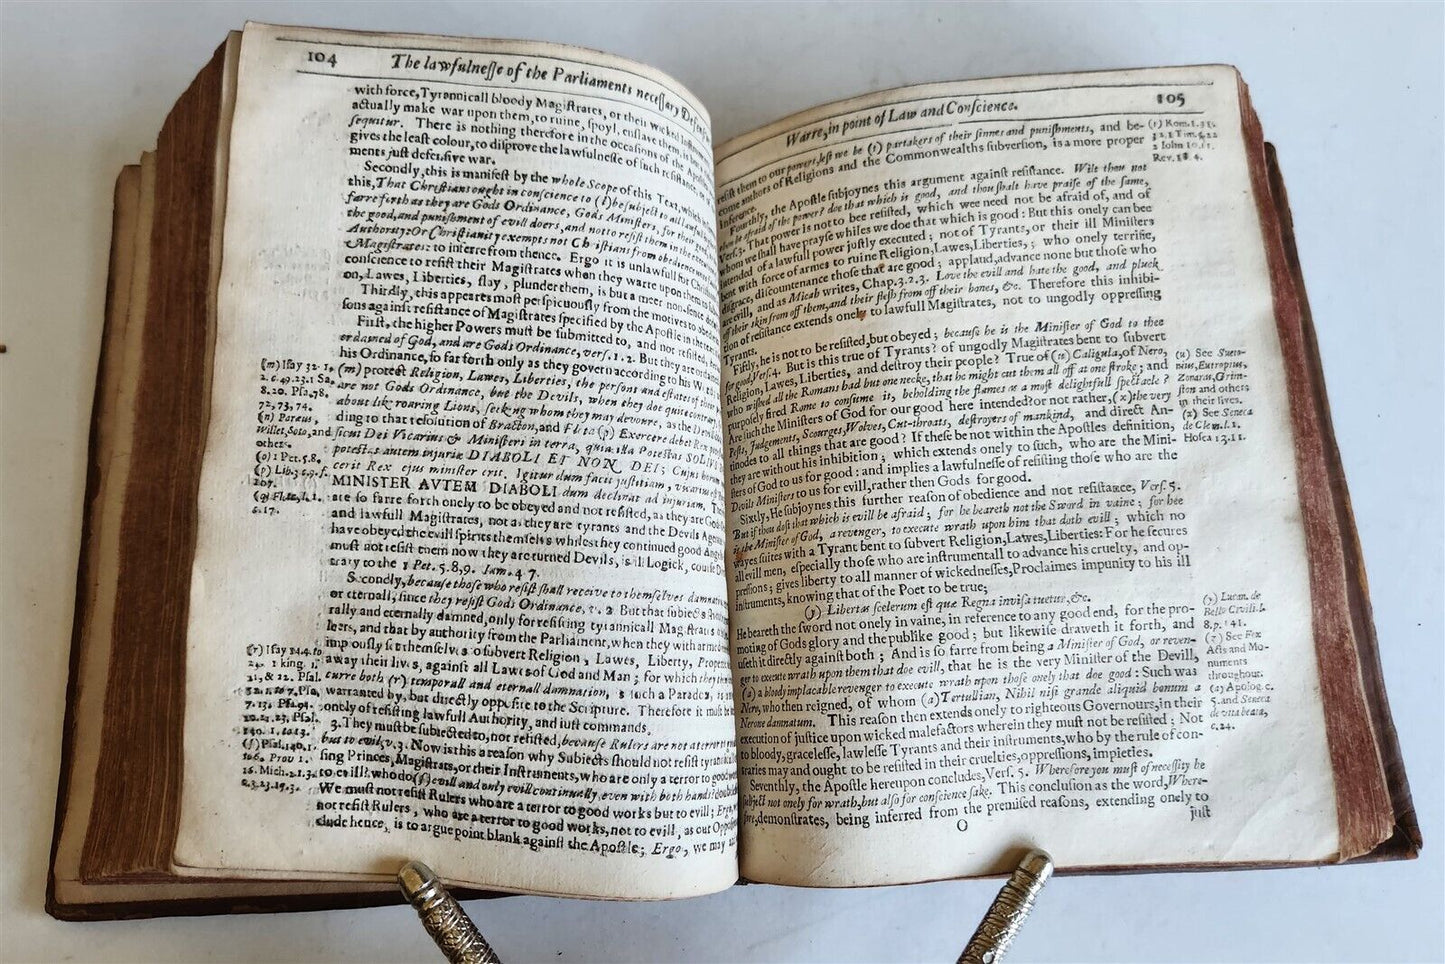 104 The lawfulnesse of the Parliaments necessary
with force, Tyrannicall bloody Magistrates, or their wicked
actually make war upon them, to ruine, spoyl, enslave them,
sequitur. There is nothing therefore in the occasions of the
gives the least colour, to disprove the lawfulnesse of such resistance,
ments just defensive war.
Secondly, this is manifest by the whole Scope of this Text, which
this, That Christians ought in conscience to (l) be subject to all lawfull
farre forth as they are Gods Ordinance, Gods Ministers, for their
the good, and punishment of evill doers, and not to resist them in the
Authority: Or Christianity exempts not Christians from obedience unto
Magistrates: to inferre from thence. Ergo it is unlawfull for Christians
conscience to resist their Magistrates when they warre upon them to
on, Lawes, Liberties, slay, plunder them, is but a meer non-sence
Thirdly, this appears most perspicuously from the motives to
sons against resistance of Magistrates specified by the Apostle in
First, the higher Powers must be submitted to, and not resisted,
ordained of God, and are Gods Ordinance, vers. 1. 2. But they are
his Ordinance, so far forth only as they govern according to his
(m) Isay 32. 1. (m) protect Religion, Lawes, Liberties, the persons and estates of
2. c. 49. 23. 1 Sa. are not Gods Ordinance, but the Devils, when they doe quite
8. 20. Psa. 78. about like roaring Lions, seeking whom they may devoure, as the
72, 73, 74. ding to that resolution of Bracton, and Fleta (p) Exercere debet Rex
(n) Paraus,
Willet, Soto, and sicut Dei Vicarius & Ministeri in terra, quia illa Potestas SOLIUS
others. potestas autem injuriæ DIABOLI ET NON DEI; Cujus
(o) 1 Pet. 5. 8. cerit Rex ejus minister erit. Igitur dum facit justitiam,
(p) Lib. 3. c. 9. f. MINISTER AVTEM DIABOLI dum declinat ad injuriam.
207. are so farre forth onely to be obeyed and not resisted, as they are
(q) Fleta, l. 1. and lawfull Magistrates, not as they are tyrants and the Devils
c. 17. have obeyed the evill spirits themselvs whiles they continued good
must not resist them now they are turned Devils, is ill Logick,
trary to the 1 Pet. 5. 8, 9. Iam. 4. 7.
Secondly, because those who resist shall receive to themselves damnation,
or eternall, since they resist Gods Ordinance, v. 2. But that subjects
rally and eternally damned, only for resisting tyrannicall Magistrates
bers, and that by authority from the Parliament, when they with
(r) Isay 14. 4. to impiously set themselves to subvert Religion, Lawes, Liberty,
23. 1 king. away their lives, against all Laws of God and Man; for which they
21, & 22. Psal. curre both (r) temporall and eternall damnation, is such a Paradox,
52. 1. to 7. warranted by, but directly opposite to the Scripture. Therefore it must
7. 13. Psa. 94. onely of resisting lawfull Authority, and iust commands.
20. 21. 23. Psal. 3. They must be subjected to, nor resisted, because Rulers are not a terror
140. 1. to 13. but to evil, v. 3. Now is this a reason why Subjects should not resist
(f) Psal. 140. 1. sing Princes, Magistrats, or their Instruments, who are only a terror to good
106. Prov 1. to evill? who do (f) evill and only evill continually, even with both hands?
16. Mich. 2. 1. 3. We must not resist Rulers who are a terror to good works but to evill;
2. 3. 23. 19. 3. not resist Rulers, who are a terror to good works, not to evill, as our
clude hence, is to argue point blank against the Apostle; Ergo, we may
Warre, in point of Law and Conscience. 105
resist them to our powers, lest we be (t) partakers of their sinnes and punishments, and be- (t) Rom. 1. 31.
come authors of Religions and the Commonwealths subversion, is a more proper 32. 1 Tim. 5. 22
inference. 2 Iohn 10. 11.
Fourthly, the Apostle subjoynes this argument against resistance. Wilt thou not Rev. 18. 4.
then be afraid of the power? doe that which is good, and thou shalt have praise of the same,
Vers. 3. That power is not to bee resisted, which wee need not be afraid of, and of
whom we shall have prayse whiles we doe that which is good: But this onely can bee
intended of a lawfull power justly executed; not of Tyrants, or their ill Ministers
bent with force of armes to ruine Religion, Lawes, Liberties,; who onely terrifie,
disgrace, discountenance those that are good; applaud, advance none but those who
are evill, and as Micah writes, Chap. 3. 2. 3. Love the evill and hate the good, and pluck
off their skin from off them, and their flesh from off their bones, &c. Therefore this inhibi-
tion of resistance extends onely to lawfull Magistrates, not to ungodly oppressing
Tyrants.
Fiftly, he is not to be resisted, but obeyed; because he is the Minister of God to thee
for good, Vers. 4. But is this true of Tyrants? of ungodly Magistrates bent to subvert
Religion, Lawes, Liberties, and destroy their people? True of (u) Caligula, of Nero, (u) See Sueto-
who wished all the Romans had but one necke, that he might cut them all off at one stroke; and nius, Eutropius,
purposely fired Rome to consume it, beholding the flames as a most delightfull spectacle? Zonaras, Grim-
Are such the Ministers of God for our good here intended? or not rather, (x) the very ston and others
Pests, Judgements, Scourges, Wolves, Cut-throats, destroyers of mankind, and direct An- in their lives.
tinodes to all things that are good? If these be not within the Apostles definition, (x) See Seneca
they are without his inhibition; which extends onely to such, who are the Mini- de Clem. l. 1.
sters of God to us for good: and implies a lawfulnesse of resisting those who are the Hosea 13. 11.
Devils Ministers to us for evill, rather then Gods for good.
Sixtly, He subjoynes this further reason of obedience and not resistance, Vers. 5.
But if thou dost that which is evill be afraid; for he beareth not the Sword in vaine; for hee
is the Minister of God, a revenger, to execute wrath upon him that doth evill; which no
wayes suites with a Tyrant bent to subvert Religion, Lawes, Liberties: For he secures
all evill men, especially those who are instrumentall to advance his cruelty, and op-
pressions; gives liberty to all manner of wickednesses, Proclaimes impunity to his ill
instruments, knowing that of the Poet to be true;
(y) Libertas scelerum est quæ Regna invisa tuetur, &c. (y) Lucan. de
He beareth the sword not onely in vaine, in reference to any good end, for the pro- Bello Civili. l.
moting of Gods glory and the publike good; but likewise draweth it forth, and 8. p. 141.
useth it directly against both; And is so farre from being a Minister of God, or reven- (z) See Fox
ger to execute wrath upon them that doe evill, that he is the very Minister of the Devill, Acts and Mo-
(a) a bloody implacable revenger to execute wrath upon those onely that doe good: Such was numents
Nero, who then reigned, of whom (a) Tertullian, Nihil nisi grande aliquid bonum a throughout.
Nerone damnatum. This reason then extends onely to righteous Governours, in their (a) Apolog. c.
execution of justice upon wicked malefactors wherein they must not be resisted; Not 5. and Seneca
to bloody, gracelesse, lawlesse Tyrants and their instruments, who by the rule of con- de vita beata,
traries may and ought to be resisted in their cruelties, oppressions, impieties. c. 24.
Seventhly, the Apostle hereupon concludes, Vers. 5. Wherefore you must of necessity be
subject not onely for wrath, but also for conscience sake. This conclusion as the word, Where-
fore, demonstrates, being inferred from the premised reasons, extending onely to
O just